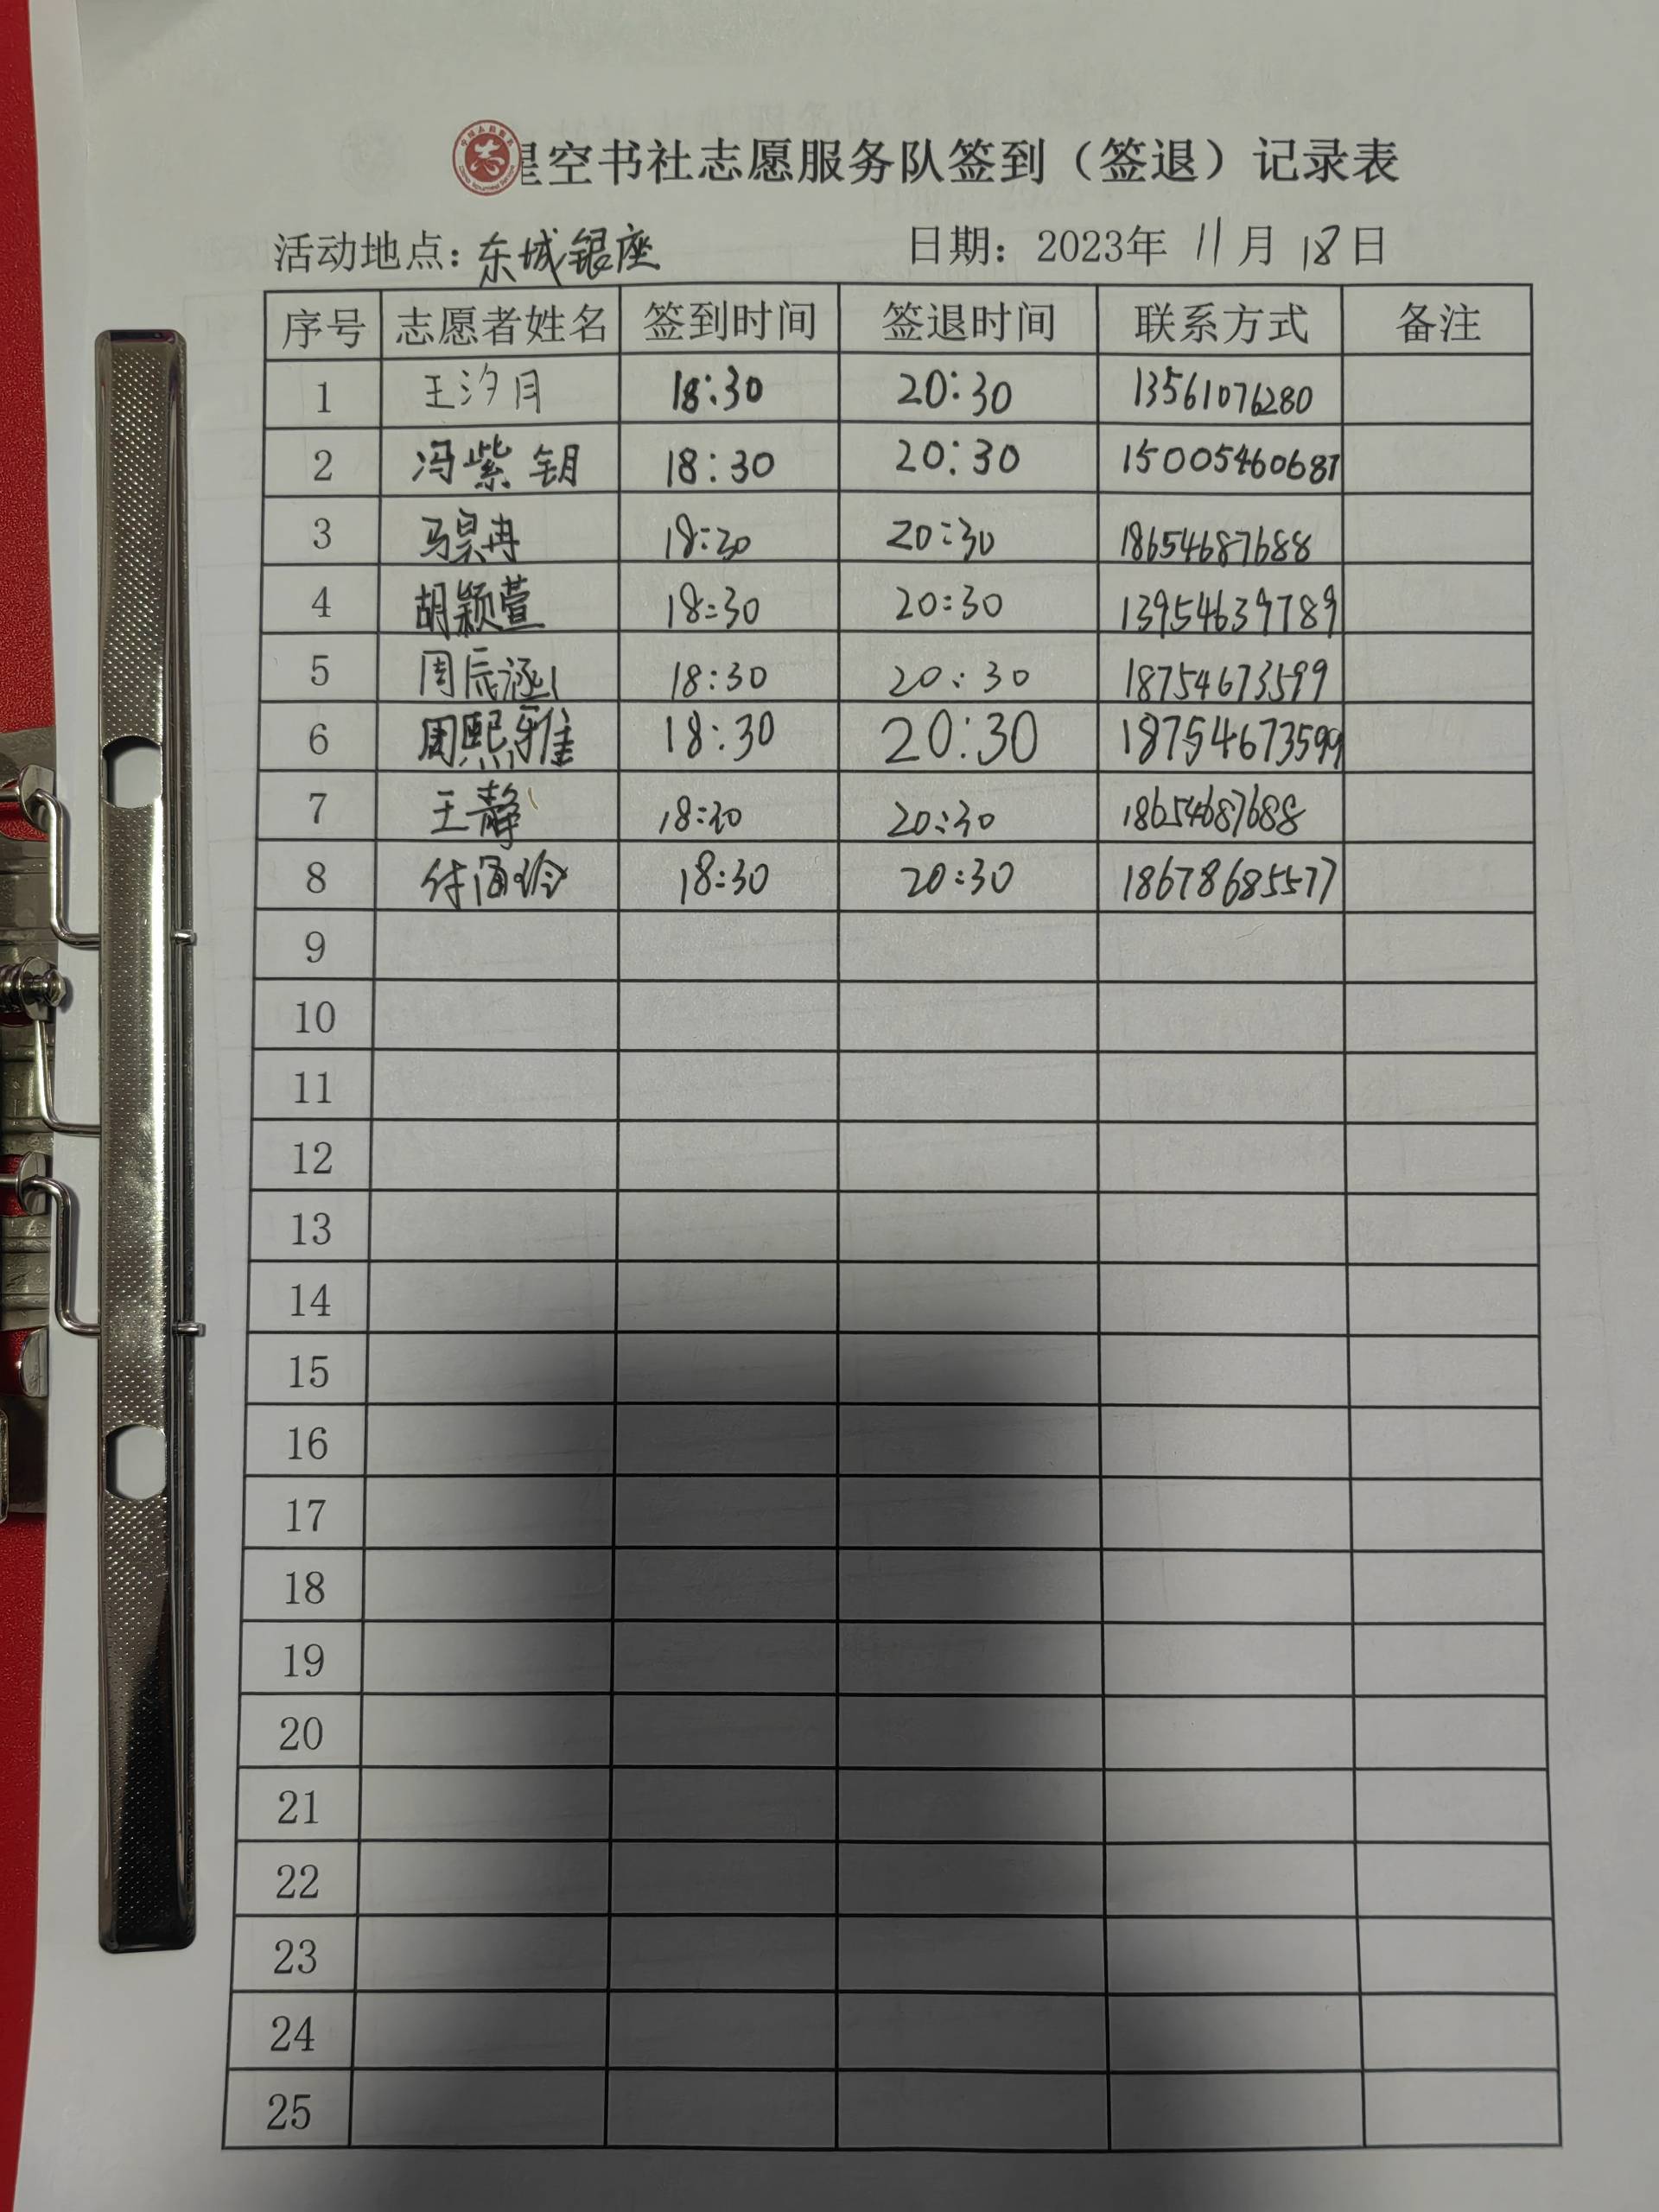 星空书社志愿服务队签到（签退）记录表
活动地点：东城银座 日期：2023年 11月 18日
序号 志愿者姓名 签到时间 签退时间 联系方式 备注
1 王汐月 18:30 20:30 13561076280
2 冯紫钥 18:30 20:30 15005460687
3 马昊冉 18:30 20:30 18654687688
4 胡颖萱 18:30 20:30 13954639789
5 周辰涵 18:30 20:30 18754673599
6 周熙雅 18:30 20:30 18754673599
7 王静 18:30 20:30 18654687688
8 18:30 20:30 18678685577
9
10
11
12
13
14
15
16
17
18
19
20
21
22
23
24
25